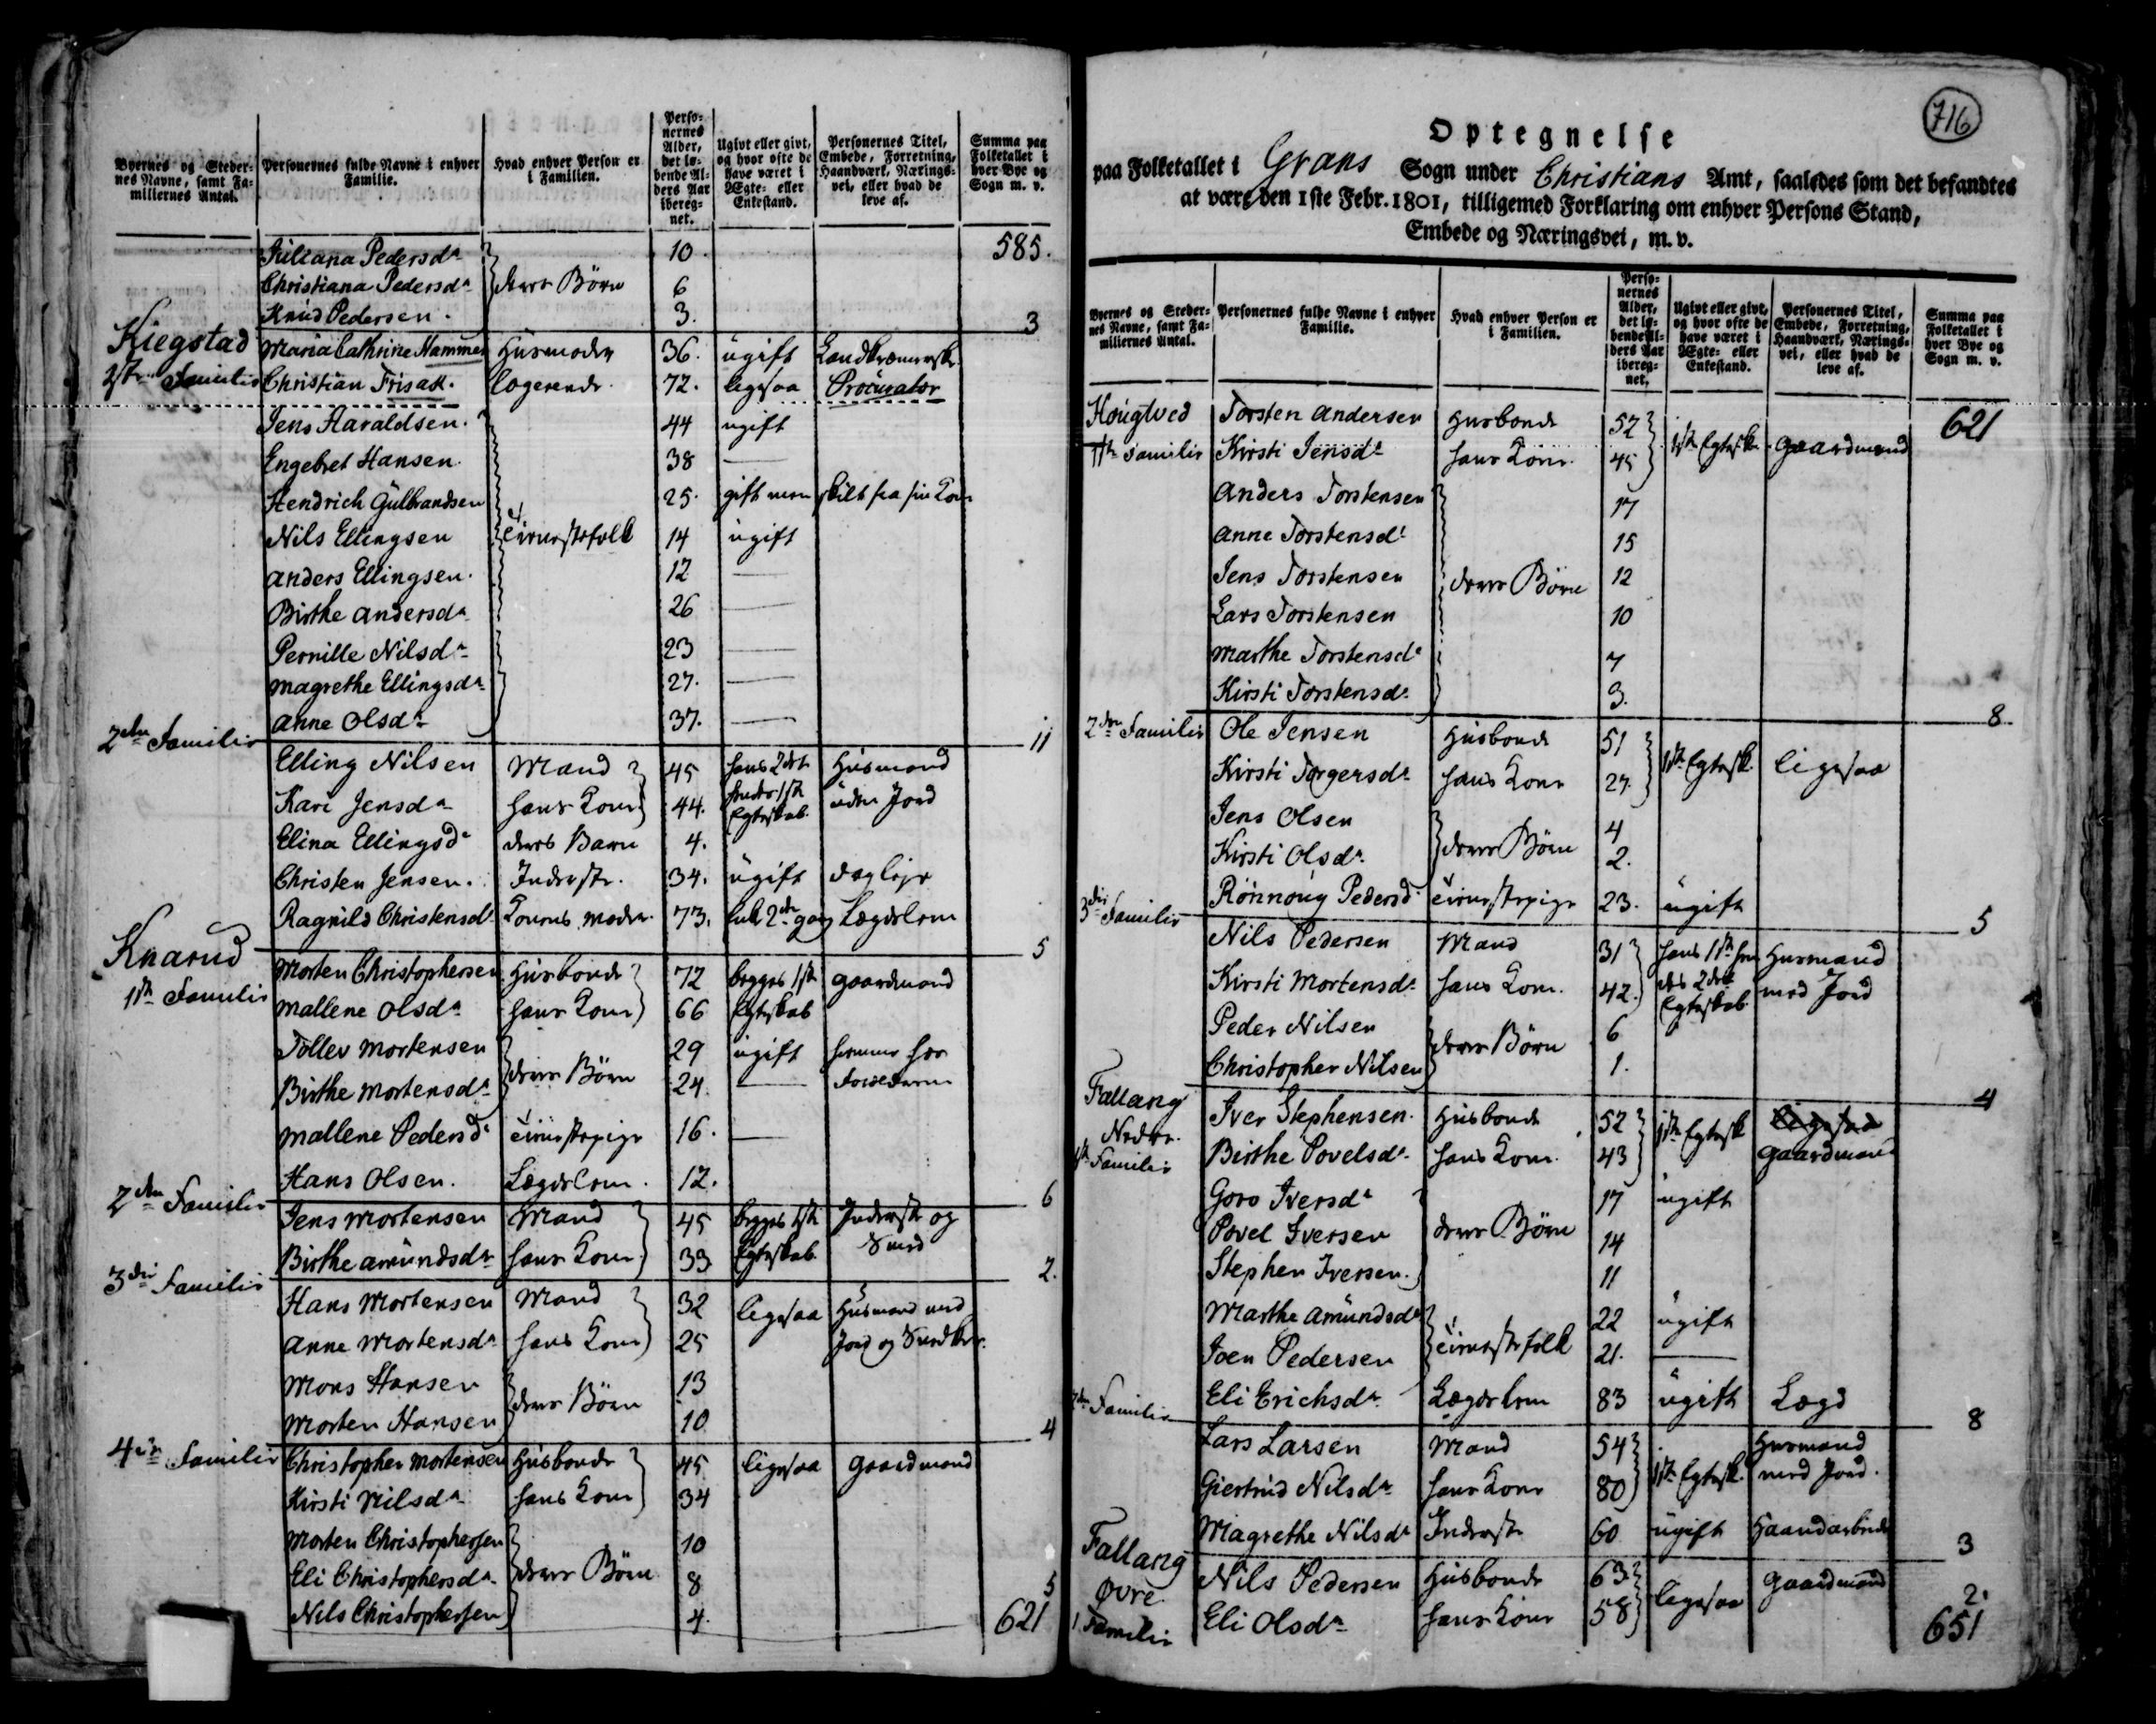 Byernes og Steder-
nes Navne, samt Fa-
miliernes Antal.
Personernes fulde Navne i enhver
Familie.
Hvad enhver Person er
i Familien.
Perso-
nernes
Alder,
det lø-
bende Al-
ders Aar
ibereg-
net.
Ugivt eller givt,
og hvor ofte de
have været i
Ægte- eller
Enkestand.
Personernes Titel,
Embede, Forretning,
Haandværk, Nærings-
vei, eller hvad de
leve af.
Summa paa
Folketallet i
hver Bye og
Sogn m. v.
585.
Juliana Pedersdr 10.
Christiana Pedersdr deres Børn 6
Knud Pedersen. 3. 3
Kiegstad Maria Cathrine Hammer Husmoder 36. ugift
1ste Familie Christian Frisak. logerende 72. ligesaa Procurator
Jens Haraldsen. 44 ugift
Engebret Hansen. 38 —
Hendrich Gulbrandsen 25. gift men skilt fra sin Kone
Nils Ellingsen tienestefolk 14 ugift
Anders Ellingsen. 12 —
Birthe Andersdr 26 —
Pernille Nilsdr 23 —
Magrethe Ellingsdr 27. —
Anne Olsdr 37. — 11
2den Familie
Elling Nilsen Mand 45 hans 2det Husmand
Kari Jensdr hans Kone 44. hendes 1ste Egteskab. uden Jord
Elina Ellingsdr deres Barn 4.
Christen Jensen. Inderste. 34. ugift
Ragnild Christensdr Konens Moder 73. Enke 2den gang Lægdslem 5
Knarud
1ste Familie
Morten Christophersen Husbonde 72 begges 1ste Gaardmand
Mallene Olsdr hans Kone 66 Egteskab
Tollev Mortensen 29 ugift hiemme hos
Birthe Mortensdr deres Børn 24. — Forældrene
Mallene Pedersdr tienestepige 16. —
Hans Olsen. Lægdslem. 12. 6
2den Familie
Jens Mortensen Mand 45 begges 1ste Inderste og
Birthe Amundsdr hans Kone 33 Egteskab Smed 2.
3die Familie
Hans Mortensen Mand 32 ligesaa Husmand med
Anne Mortensdr hans Kone 25 Jord og
Mons Hansen 13
Morten Hansen deres Børn 10 4
4de Familie Christopher Mortensen Husbonde 45 ligesaa Gaardmand
Kirsti Nilsdr hans Kone 34
Morten Christophersen 10
Eli Christophersdr deres Børn 8 5
Nils Christophersen 4. 621
716
Optegnelse
paa Folketallet i Grans Sogn under Christians Amt, saaledes som det befandtes
at være den 1ste Febr. 1801, tilligemed Forklaring om enhver Persons Stand,
Embede og Næringsvei, m. v.
Byernes og Steder-
nes Navne, samt Fa-
miliernes Antal.
Personernes fulde Navne i enhver
Familie.
Hvad enhver Person er
i Familien.
Perso-
nernes
Alder,
det lø-
bende Al-
ders Aar
ibereg-
net.
Ugivt eller givt,
og hvor ofte de
have været i
Ægte- eller
Enkestand.
Personernes Titel,
Embede, Forretning,
Haandværk, Nærings-
vei, eller hvad de
leve af.
Summa paa
Folketallet i
hver Bye og
Sogn m. v.
Hougtved Torsten Andersen Husbonde 52 621
1ste Familie Kirsti Jensdr hans Kone. 45 1ste Egtesk. Gaardmand
Anders Torstensen 17
Anne Torstensdr 15
Jens Torstensen deres Børn 12
Lars Torstensen 10
Marthe Torstensdr 7
Kirsti Torstensdr 3. 8.
2den Familie Ole Jensen Husbonde 51
Kirsti Torgersdr hans Kone 27. 1ste Egtesk. ligesaa
Jens Olsen 4
Kirsti Olsdr. deres Børn 2.
Rönnoug Pedersdr tienestepige 23. ugift 5
3die Familie
Nils Pedersen Mand 31 hans 1ste hen Husmand
Kirsti Mortensdr hans Kone. 42. des 2det Egteskab med Jord
Peder Nilsen 6
Christopher Nilsen deres Børn 1. 4
Fallang Iver Stephensen. Husbonde 52 1ste Egtesk ligesaa
Nedre. Birthe Povelsdr. hans Kone. 43 Gaardmand
1ste Familie
Goro Iversdr 17 ugift
Povel Iversen deres Børn 14
Stephen Iversen. 11
Marthe Amundsdr 22 ugift
Joen Pedersen tienestefolk 21. —
Eli Erichsdr. Lægdslem 83 ugift Lægd 8
2den Familie
Lars Larsen Mand 54 Husmand
Giertrud Nilsdr hans Kone 80 1ste Egtesk. med Jord.
Magrethe Nilsdr Inderste 60 ugift Haandarbeide 3
Fallang Nils Pedersen Husbonde 63. ligesaa Gaardmand
Øvre Eli Olsdr hans Kone 58 2.
1 Familie 651